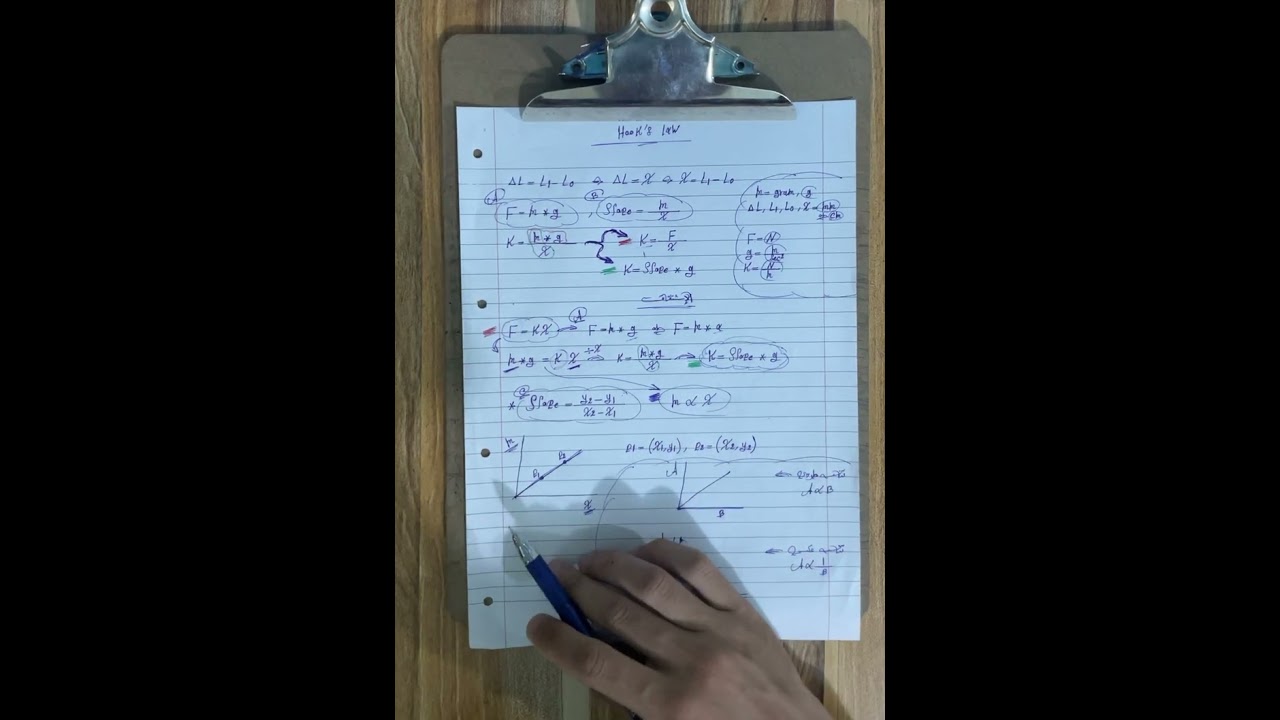 Hook's Law
ΔL = L1 - L0 ⇒ ΔL = X ⇒ X = L1 - L0
m = gram, g
ΔL, L1, L0, X = mm
⇒ cm
A B
F = m * g , Slope = m/X
K = m * g / X
K = F/X
K = Slope * g
F = N
K = N/m
A
F = KX → F = m * g ⇒ F = m * a
m * g = K X ÷X ⇒ K = m * g / X → K = Slope * g
C
* Slope = y2 - y1 / x2 - x1
m ∝ X
P1 = (X1, y1) , P2 = (X2, y2)
m
P1 P2
X
A
B
A ∝ B
A ∝ 1/B